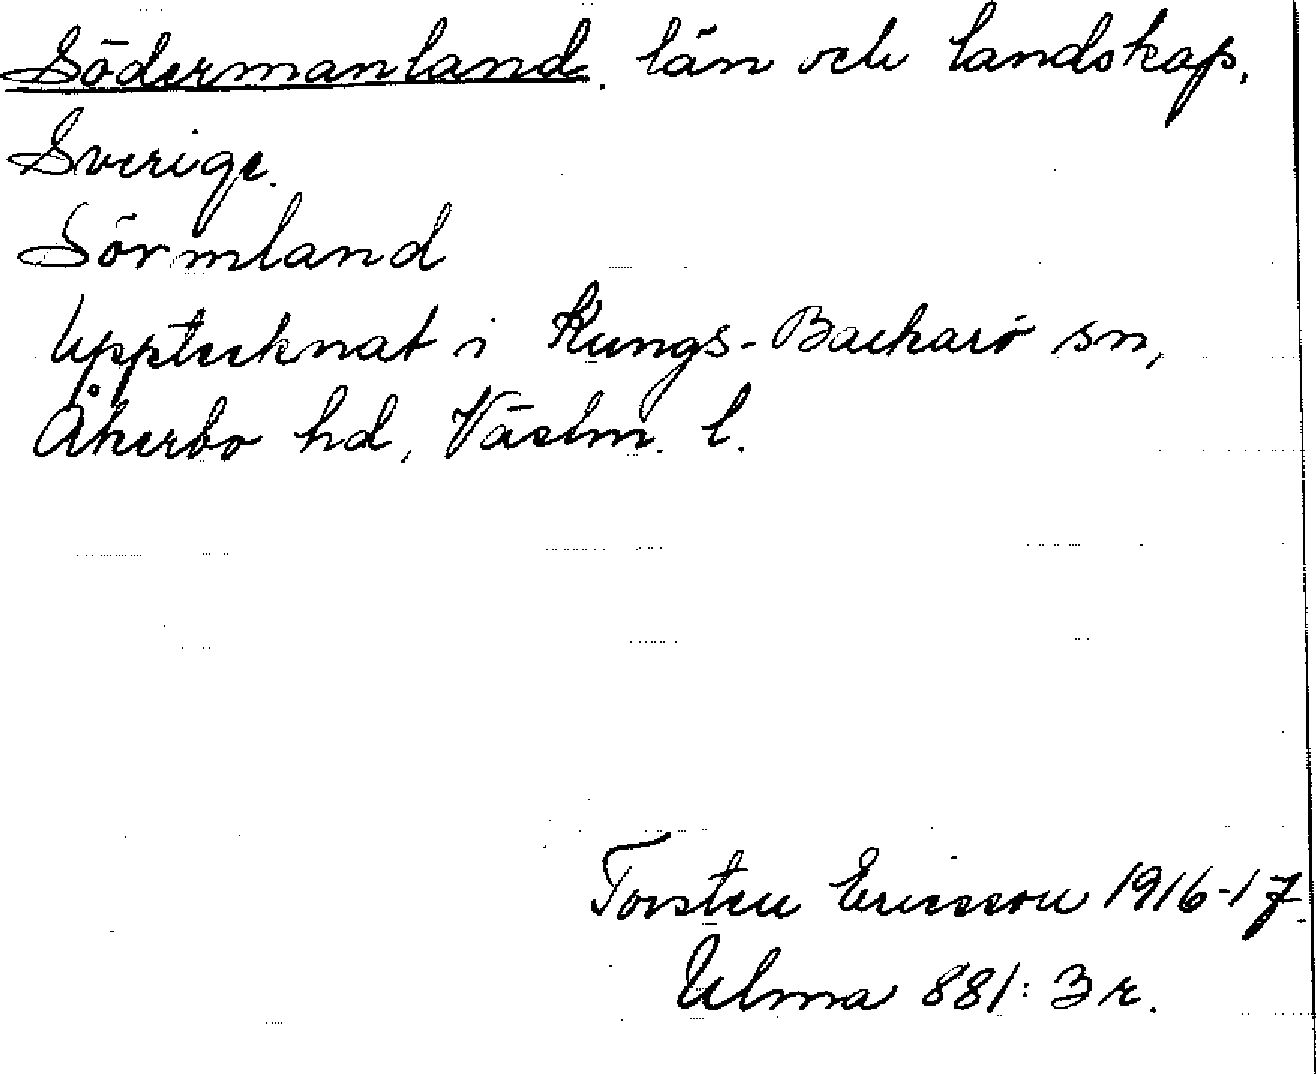 Södermanland. län och landskap.
Sverige.
Sörmland
Upptecknat i Kungs-Barkarö sn,
Åkerbo hd, Västm. l.
Torsten Ericsson 1916-17.
Ulma 881:3 r.